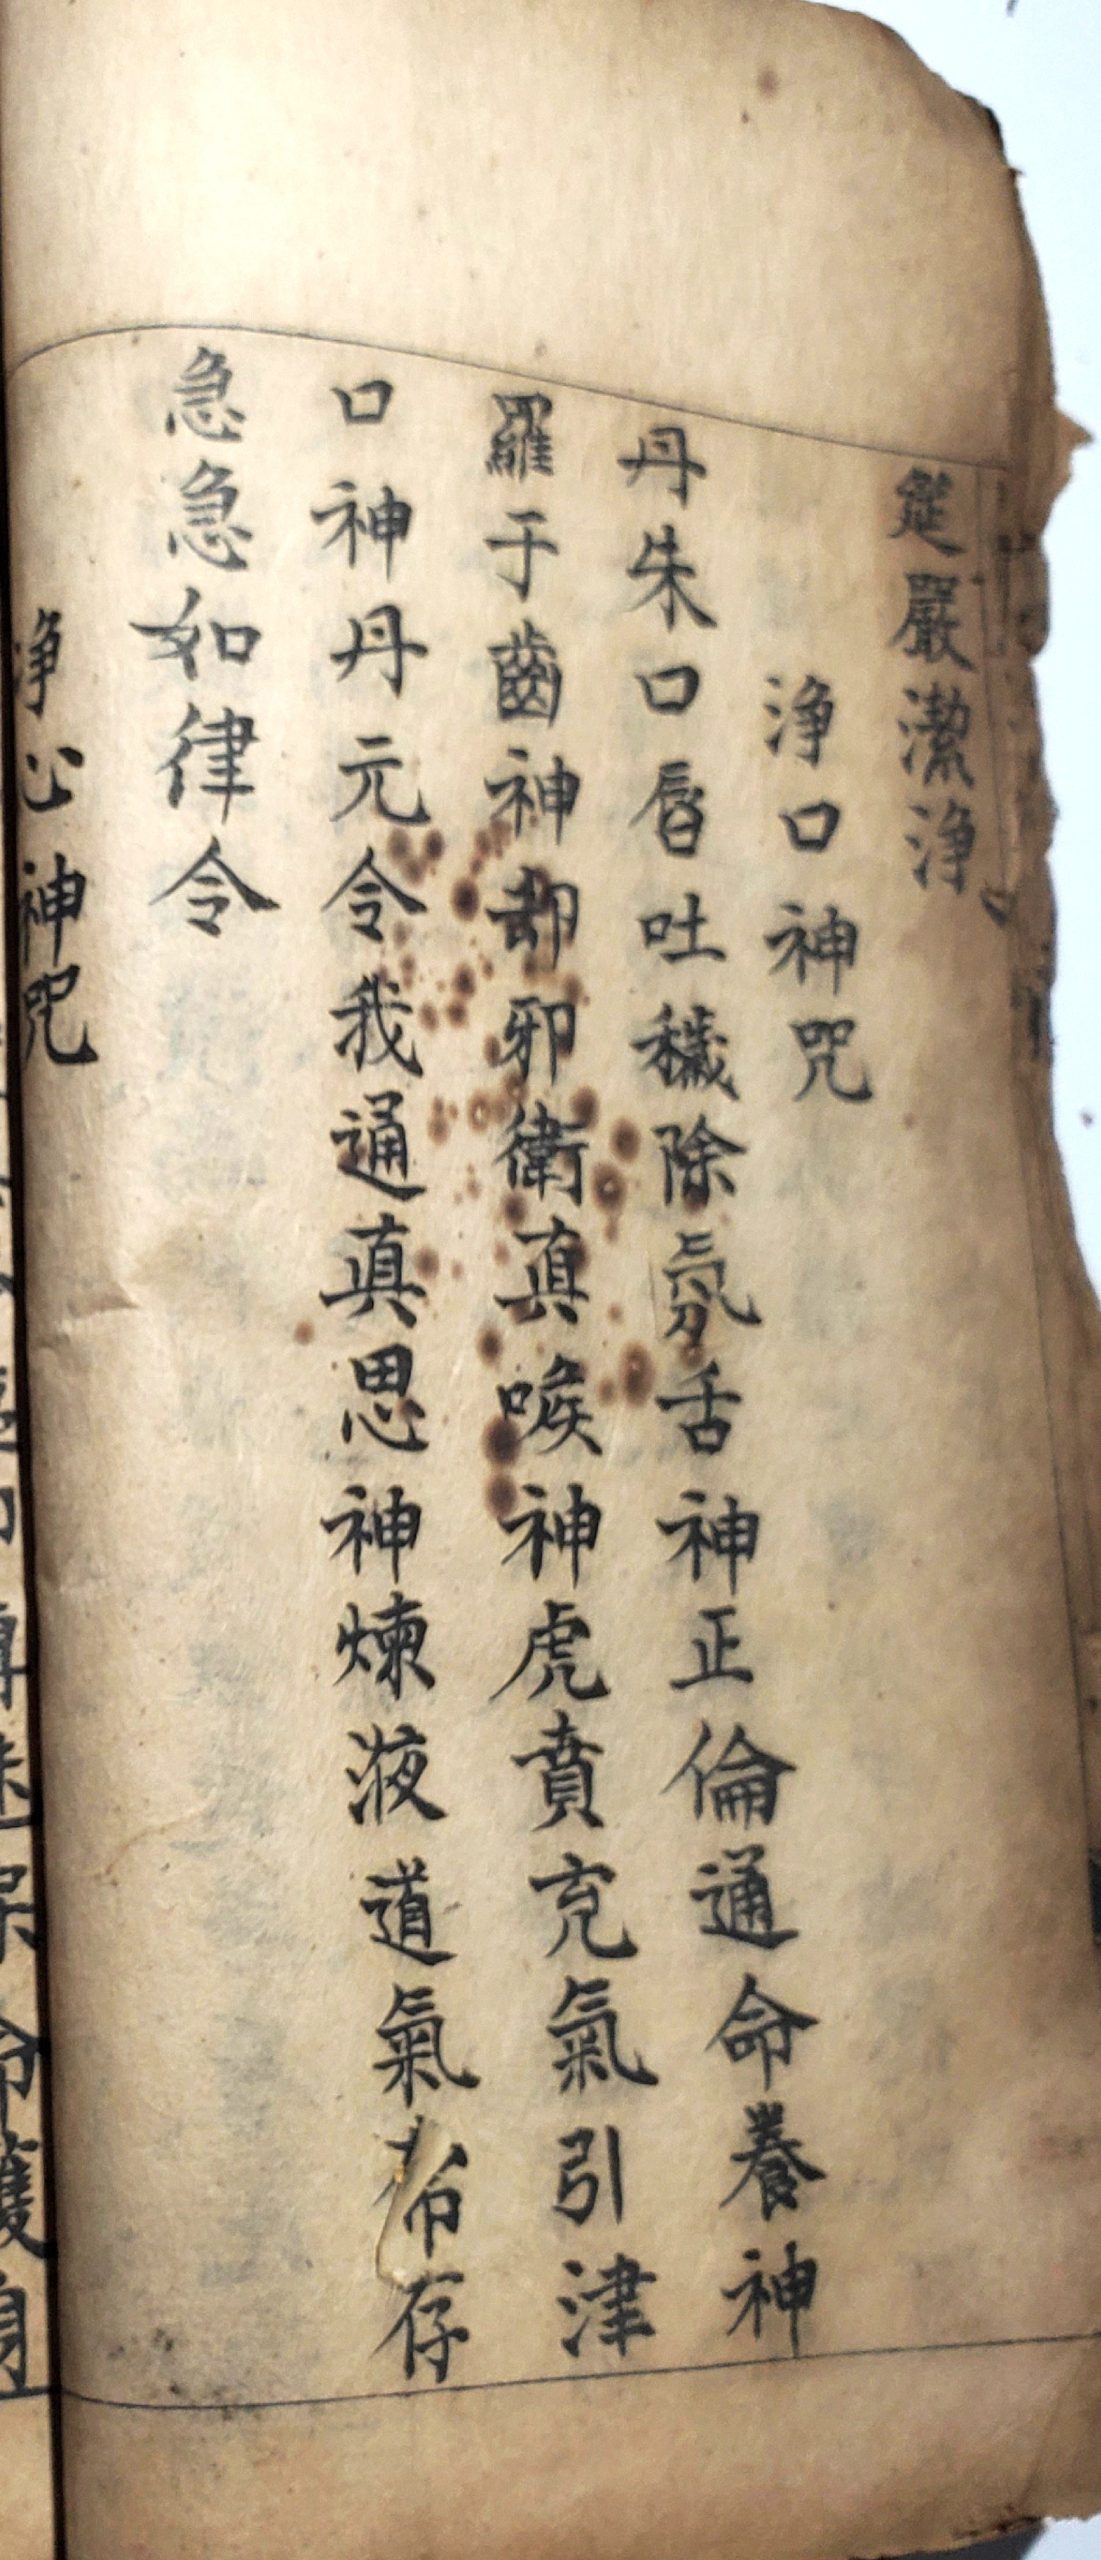 筵嚴潔浄
浄口神咒
丹朱口唇吐穢除氛舌神正倫通命養神
羅于齒神却邪衛真喉神虎賁充氣引津
口神丹元令我通真思神煉液道氣布存
急急如律令
浄心神咒